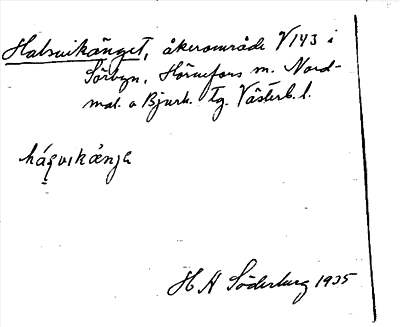 Halsvikänget, åkerområde V143 i
Sörbyn, Hörnefors m. Nord-
mal. o Bjurh. tg. Västerb. l.
hásvikänja
H A Söderberg 1935